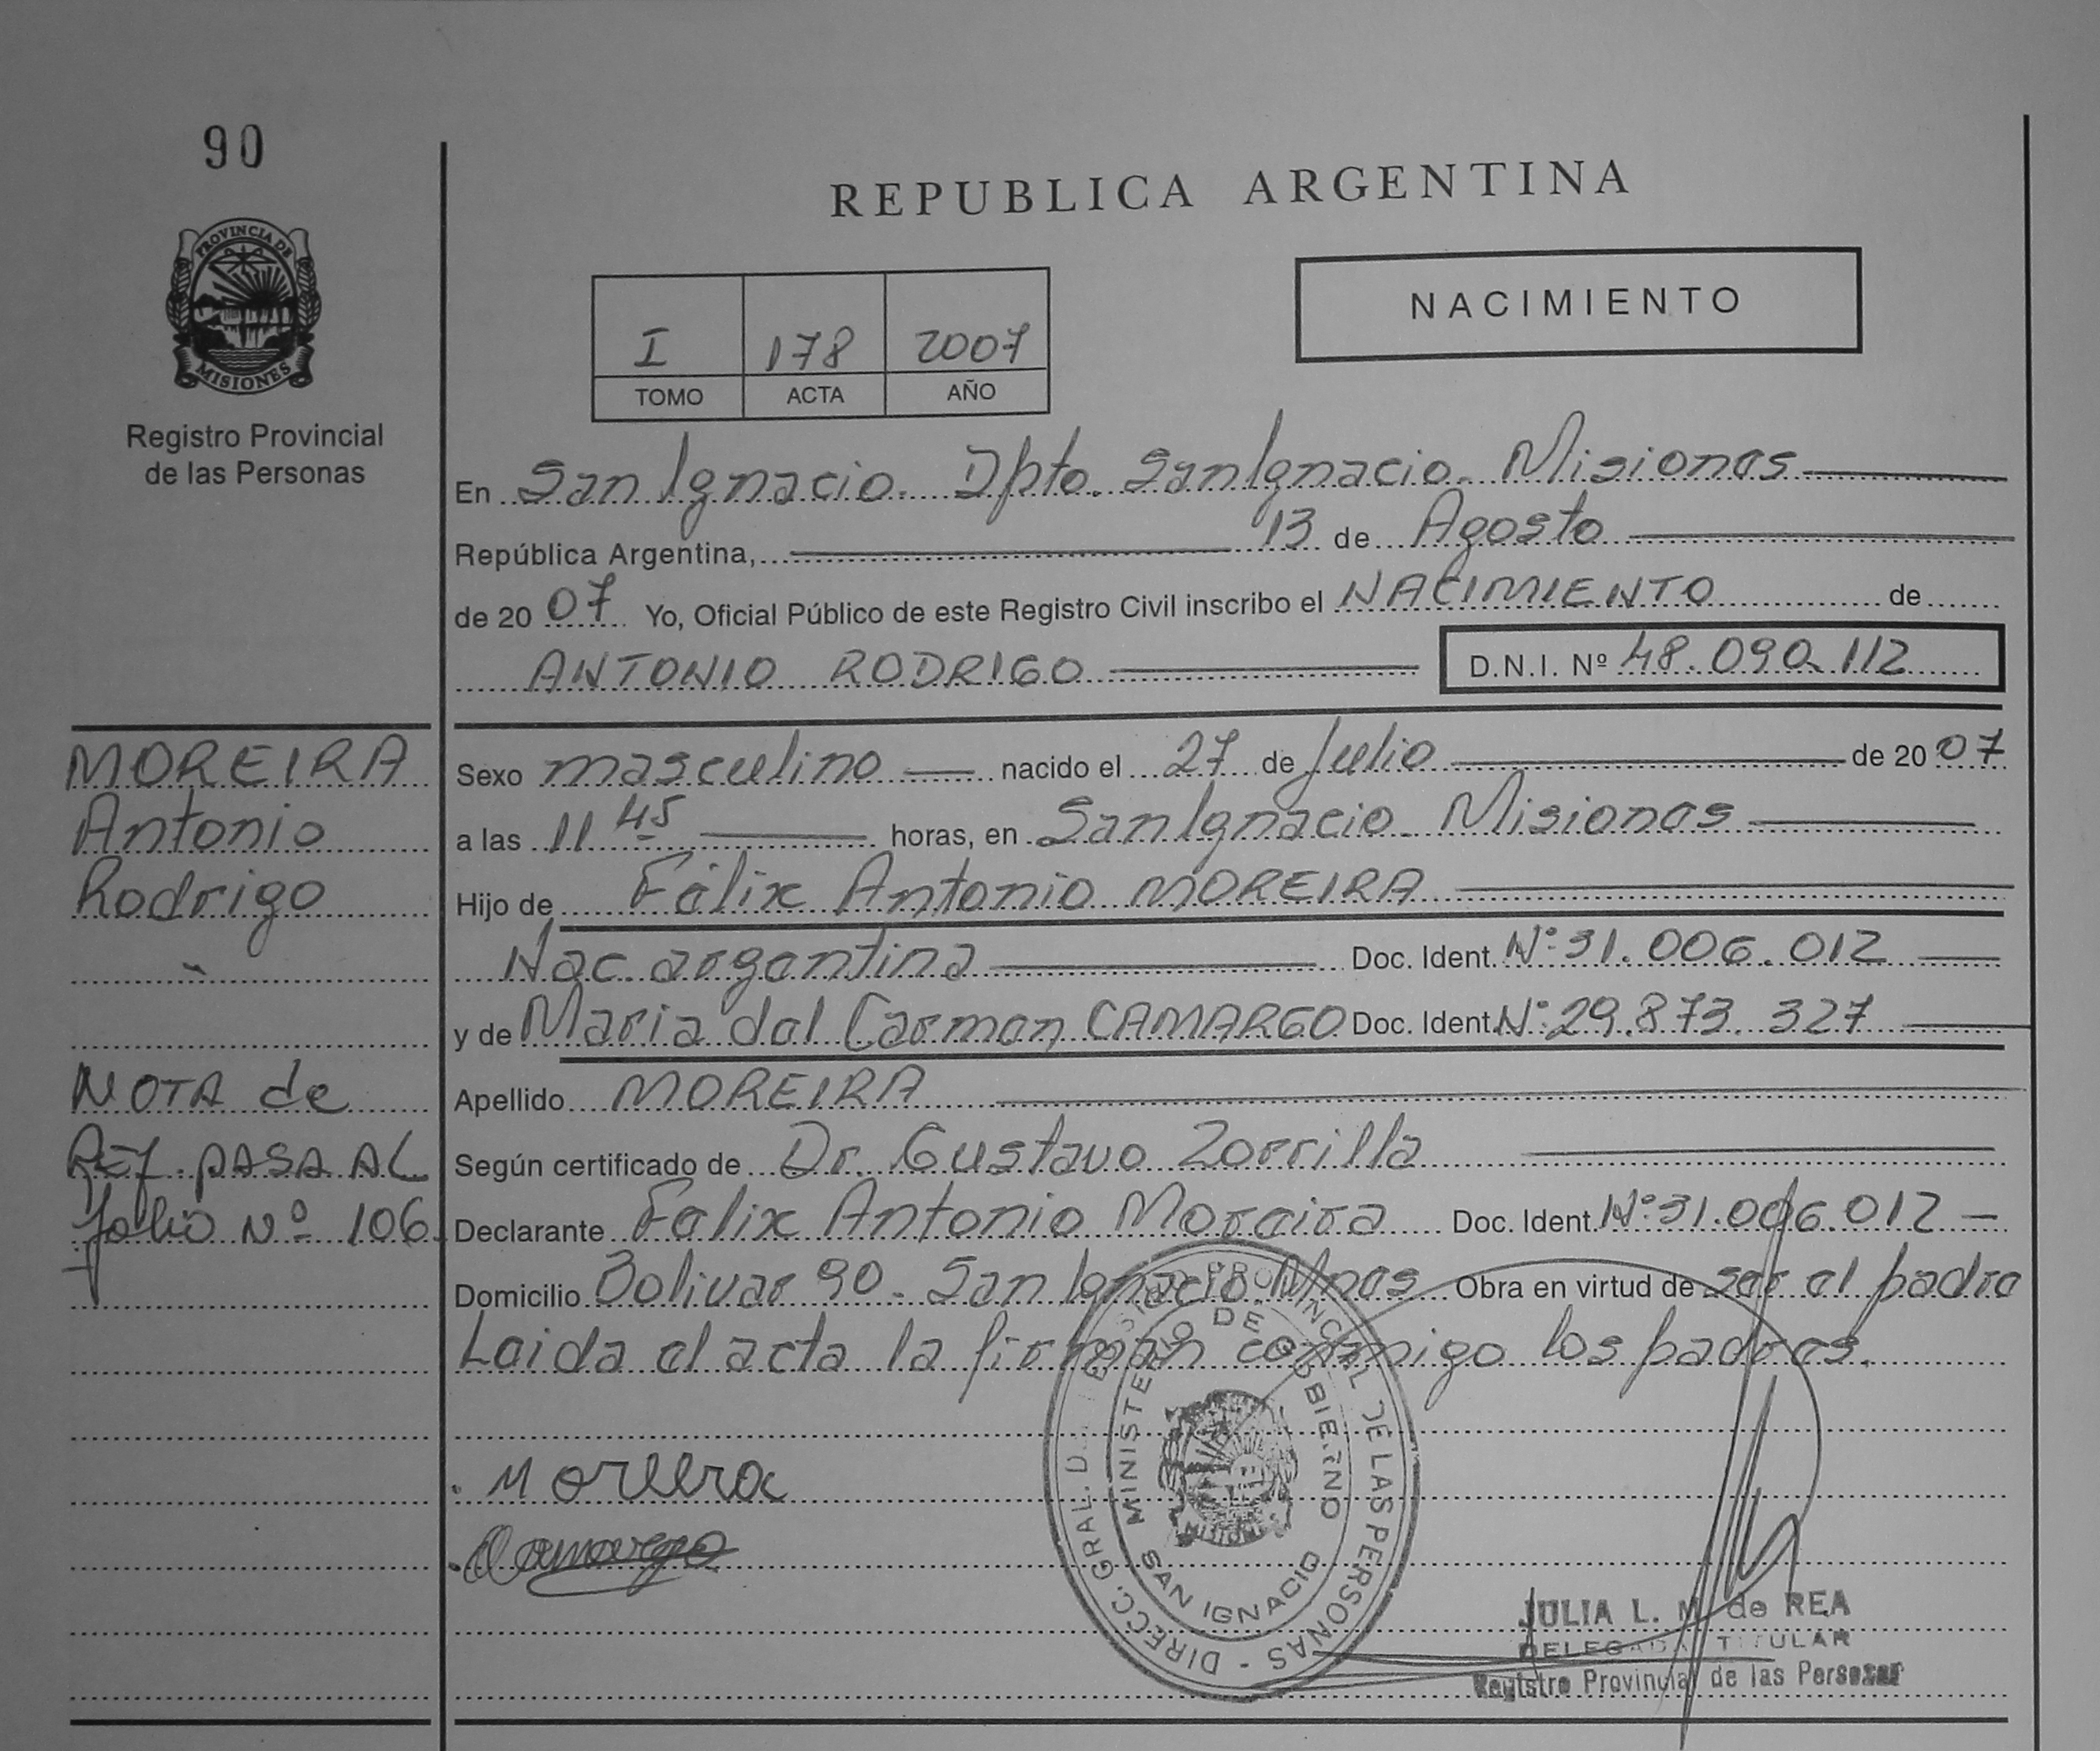 90
REPUBLICA ARGENTINA
PROVINCIA DE
MISIONES
Registro Provincial
de las Personas
NACIMIENTO
I 178 2007
TOMO ACTA AÑO
En San Ignacio. Dpto. San Ignacio. Misiones
República Argentina, 13 de Agosto
de 20 07 Yo, Oficial Público de este Registro Civil inscribo el NACIMIENTO de
ANTONIO RODRIGO D.N.I. Nº 48.090.112
MOREIRA
Antonio
Rodrigo
NOTA de
REf. PASA AL
folio Nº 106
Sexo masculino nacido el 27 de Julio de 20 07
a las 11 45 horas, en San Ignacio. Misiones
Hijo de Félix Antonio MOREIRA
Nac. argentina Doc. Ident. Nº 31.006.012
y de Maria del Carmen CAMARGO Doc. Ident. Nº 29.873.327
Apellido MOREIRA
Según certificado de Dr. Gustavo Zorrilla
Declarante Felix Antonio Moreira Doc. Ident. Nº 31.006.012
Domicilio Bolivar 90. San Ignacio Mnes Obra en virtud de ser el padre
Leida el acta la firman conmigo los padres.
Moreira
Camargo
DIRECC. GRAL. DE PROVINCIAL DE LAS PERSONAS
MINISTERIO DE GOBIERNO
MISIONES
SAN IGNACIO
JULIA L. M. de REA
DELEGADA TITULAR
Registro Provincial de las Personas